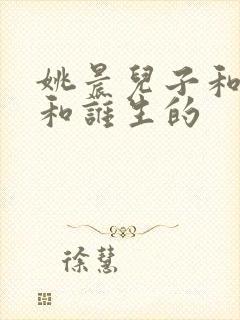 姚晨兒子和
和誰生的
徐慧